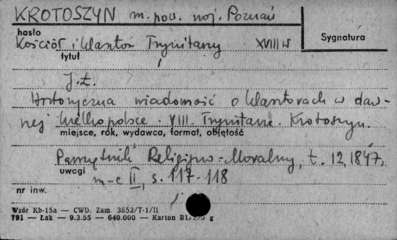 KROTOSZYN m. pow. woj. Poznań
hasło
Kościół i klasztor Trynitarzy XVIII w
Sygnatura
tytuł
J. Ł.
Historyczna wiadomość o klasztorach w daw-
nej Wielkopolsce. VIII. Trynitarze. Krotoszyn.
miejsce, rok, wydawca, format, objętość
Pamiętnik Religijno-Moralny, t. 12, 1847,
uwagi
m-c II, s. 117-118
nr inw.
Wzór Kb-15a — CWD. Zam. 3652/T-1/II
791 — Łak — 9.3.55 — 640.000 — Karton B1